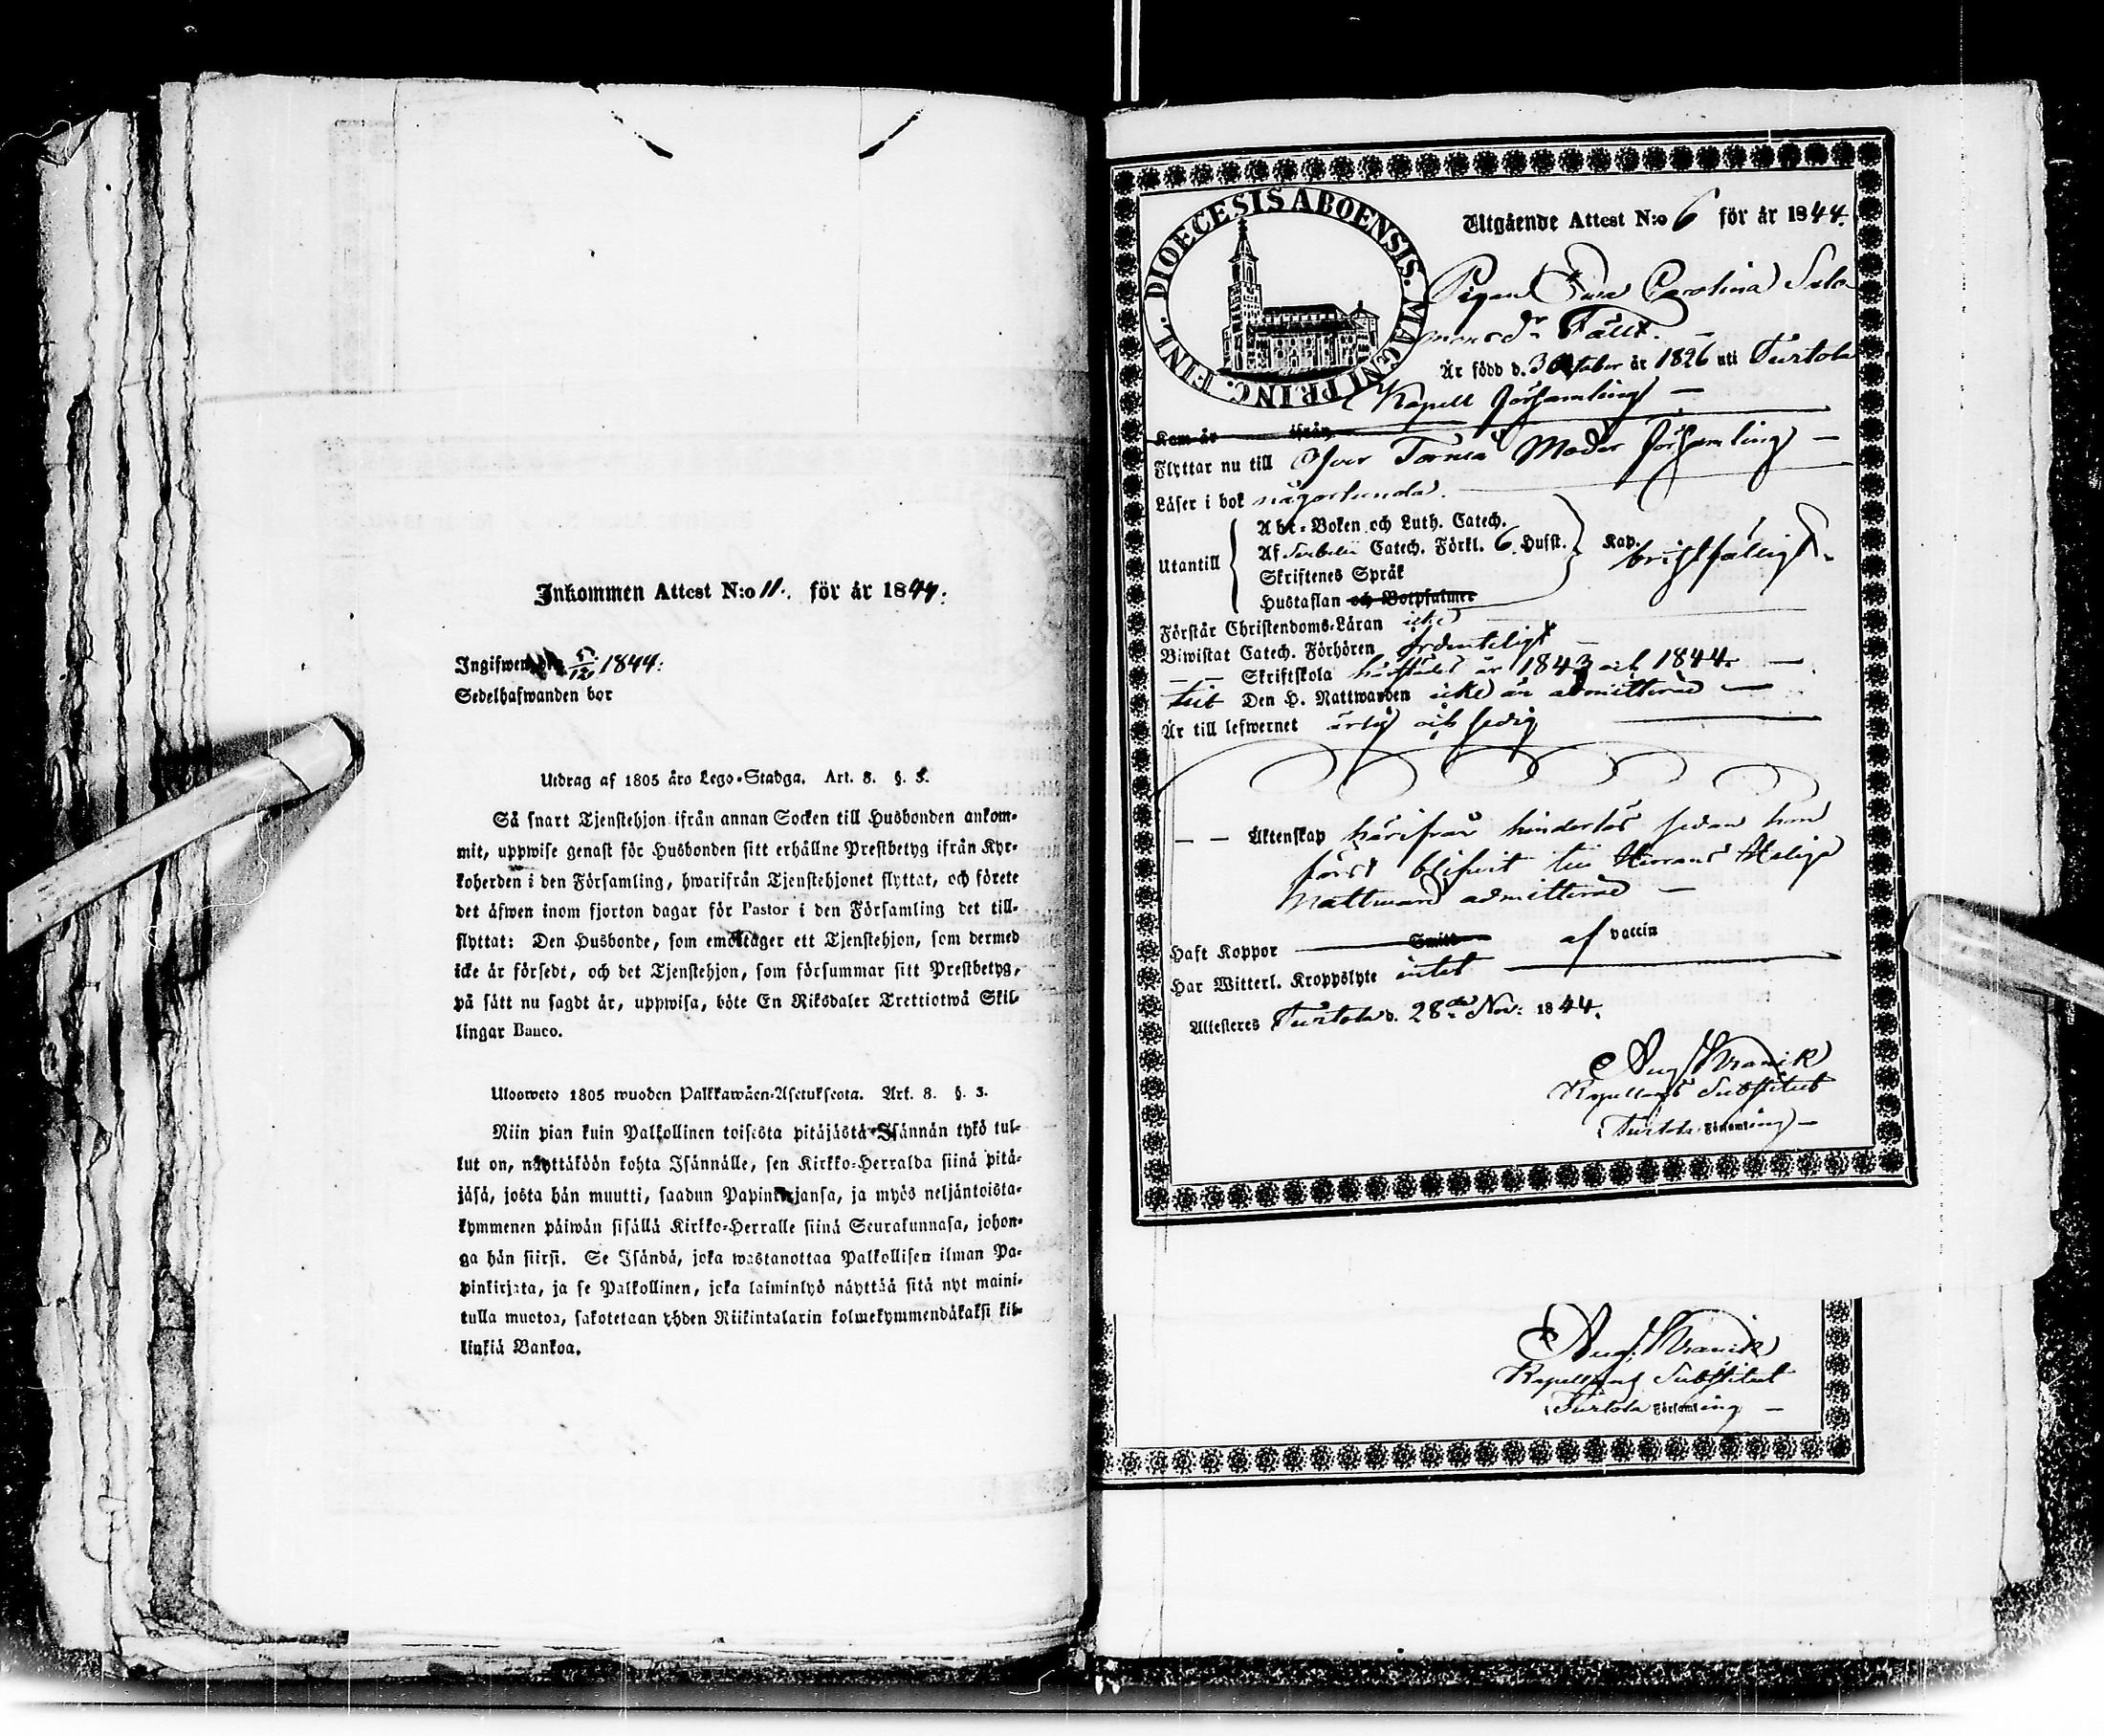 Inkommen Attest N:o 11. för år 1844.
Ingifwen den 5/12 1844.
Sedelhafwanden bor
Utdrag af 1805 års Lego-Stadga. Art. 8. §. 3.
Så snart Tjenstehjon ifrån annan Socken till Husbonden ankom-
mit, uppwise genast för Husbonden sitt erhållne Prestbetyg ifrån Kyr-
koherden i den Församling, hwarifrån Tjenstehjonet flyttat, och förete
det äfwen inom fjorton dagar för Pastor i den Församling det till-
flyttat: Den Husbonde, som emottager ett Tjenstehjon, som dermed
icke är försedt, och det Tjenstehjon, som försummar sitt Prestbetyg,
på sätt nu sagdt är, uppwisa, böte En Riksdaler Trettiotwå Skil-
lingar Banco.
Ulosweto 1805 wuoden Palkkawäen-Asetuksesta. Art. 8. §. 3.
Niin pian kuin Palkollinen toisesta pitäjästä Isännän tykö tul-
lut on, näyttäköön kohta Isännälle, sen Kirkko-Herralda siinä pitä-
jäsä, josta hän muutti, saadun Papinkirjansa, ja myös neljäntoista-
kymmenen päiwän sisällä Kirkko-Herralle siinä Seurakunnasa, johon-
ga hän siirsi. Se Isändä, joka wastanottaa Palkollisen ilman Pa-
pinkirjata, ja se Palkollinen, joka laiminlyö näyttää sitä nyt maini-
tulla muotoa, sakotetaan yhden Riikintalarin kolmekymmendäkaksi kil-
linkiä Bankoa.
DIOECESIS ABOENSIS. MAGNI PRINC. FINL.
Utgående Attest N:o 6 för år 1844.
Pigan Eva Carolina Salo-
monsdr Fält.
Är född d. 3 October år 1826 uti Turtola
Kapell församling
Kom år ifrån
Flyttar nu till Öfver Torneå Moder församling
Läser i bok någorlunda.
Utantill
Abc-Boken och Luth. Catech.
Af Svebelii Catech. Förkl. 6 Hufst. Kap.
Skriftenes Språk
Hustaflan och Botpsalmer
bristfälligt.
Förstår Christendoms-Läran icke
Biwistat Catech. Förhören ordenteligt
— — Skriftskola härstädes år 1843 och 1844.
till Den H. Nattwarden icke än admitterad
Är till lefwernet ärlig och sedig
— — Äktenskap härifrån hinderlös sedan hon
först blifvit till Herrans Heliga
Nattward admitterad
Haft Koppor Smitt af vaccin
Har Witterl. Kroppslyte intet
Attesteres Turtola d. 28de Nov: 1844.
Kapellans Substitut
i Turtola Församling
Kapellans Substitut
i Turtola Församling